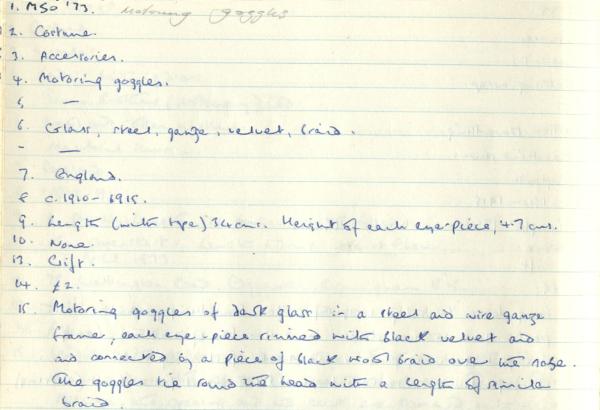 1. MSO '73. Motoring goggles
2. Costume.
3. Accessories.
4. Motoring goggles.
5 —
6. Glass, steel, gauze, velvet, braid.
- —
7. England.
8 c. 1910 - 1915.
9. Length (with tape) 34 cms. Height of each eye-piece, 4.7 cms.
10. None.
13. Gift.
14. £2.
15. Motoring goggles of dark glass in a steel and wire gauze
frame, each eye-piece rimmed with black velvet and
and connected by a piece of black wool braid over the nose.
The goggles tie round the head with a length of similar
braid.